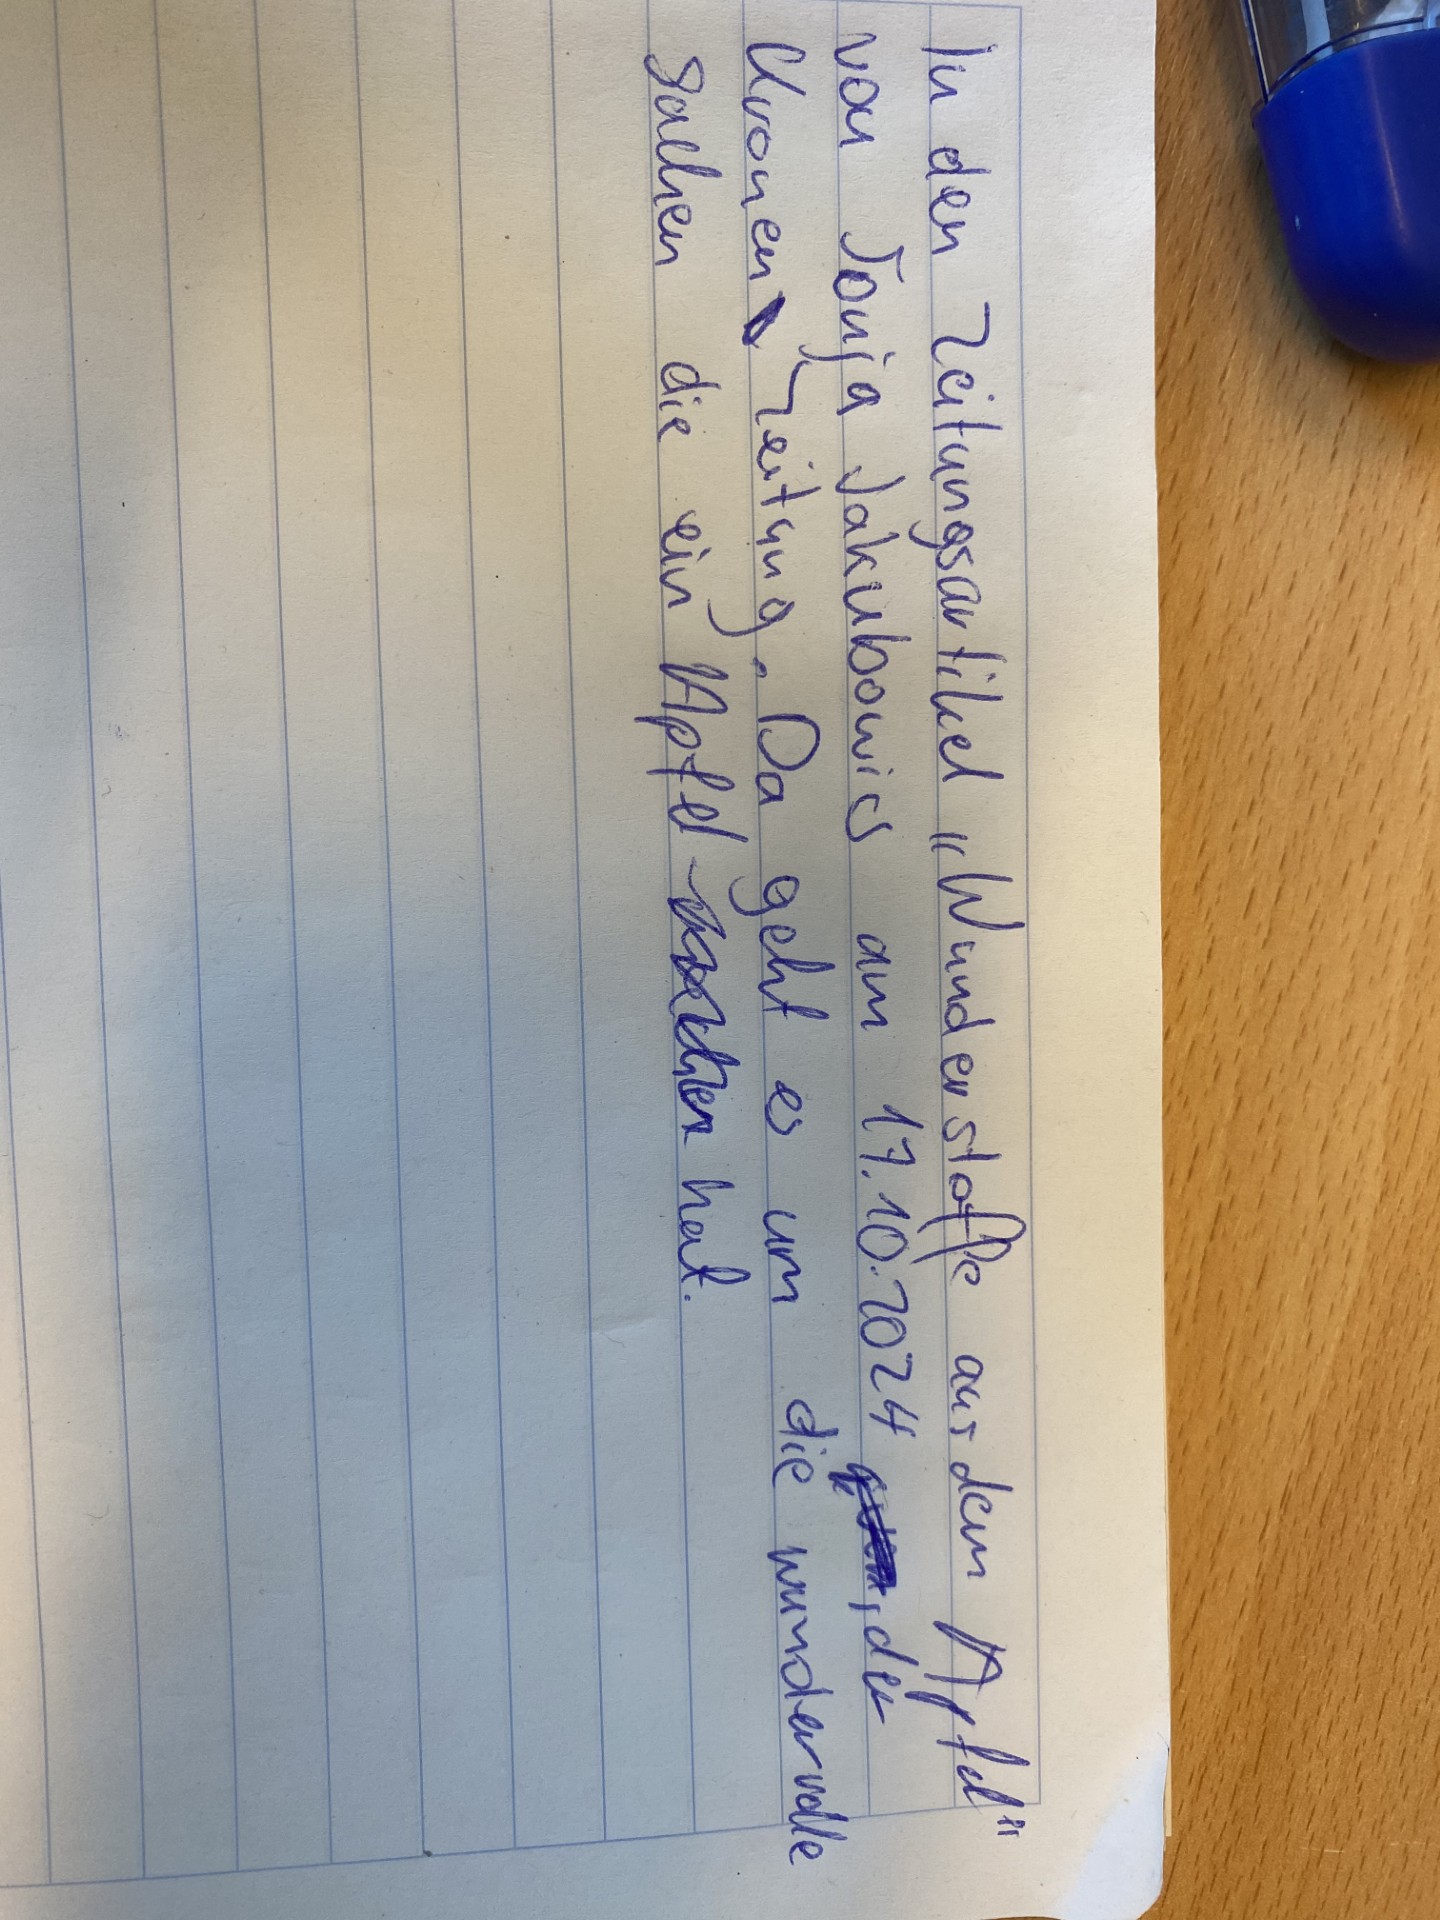 In den Zeitungsartikel „Wunderstoffe aus dem Apfel“
von Tonja Jakubowics am 17.10.2024 , der
Kronen Zeitung. Da geht es um die wundervolle
Sachen die ein Apfel hat.